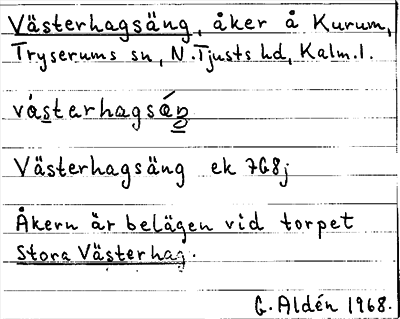 Västerhagsäng, åker å Kurum,
Tryserums sn, N. Tjusts hd, Kalm. l.
Västerhagsäng ek 7G8j
Åkern är belägen vid torpet
Stora Västerhag.
G. Aldén 1968.